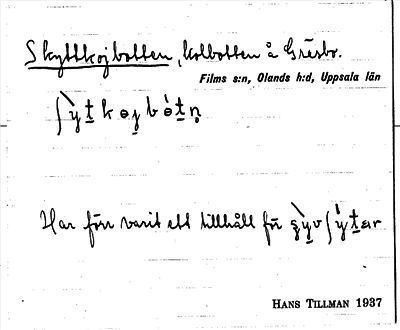 Skyttkojbotten, kolbotten å Gräsbo.
Films s:n, Olands h:d, Uppsala län
Har förr varit ett tillhåll för
HANS TILLMAN 1937